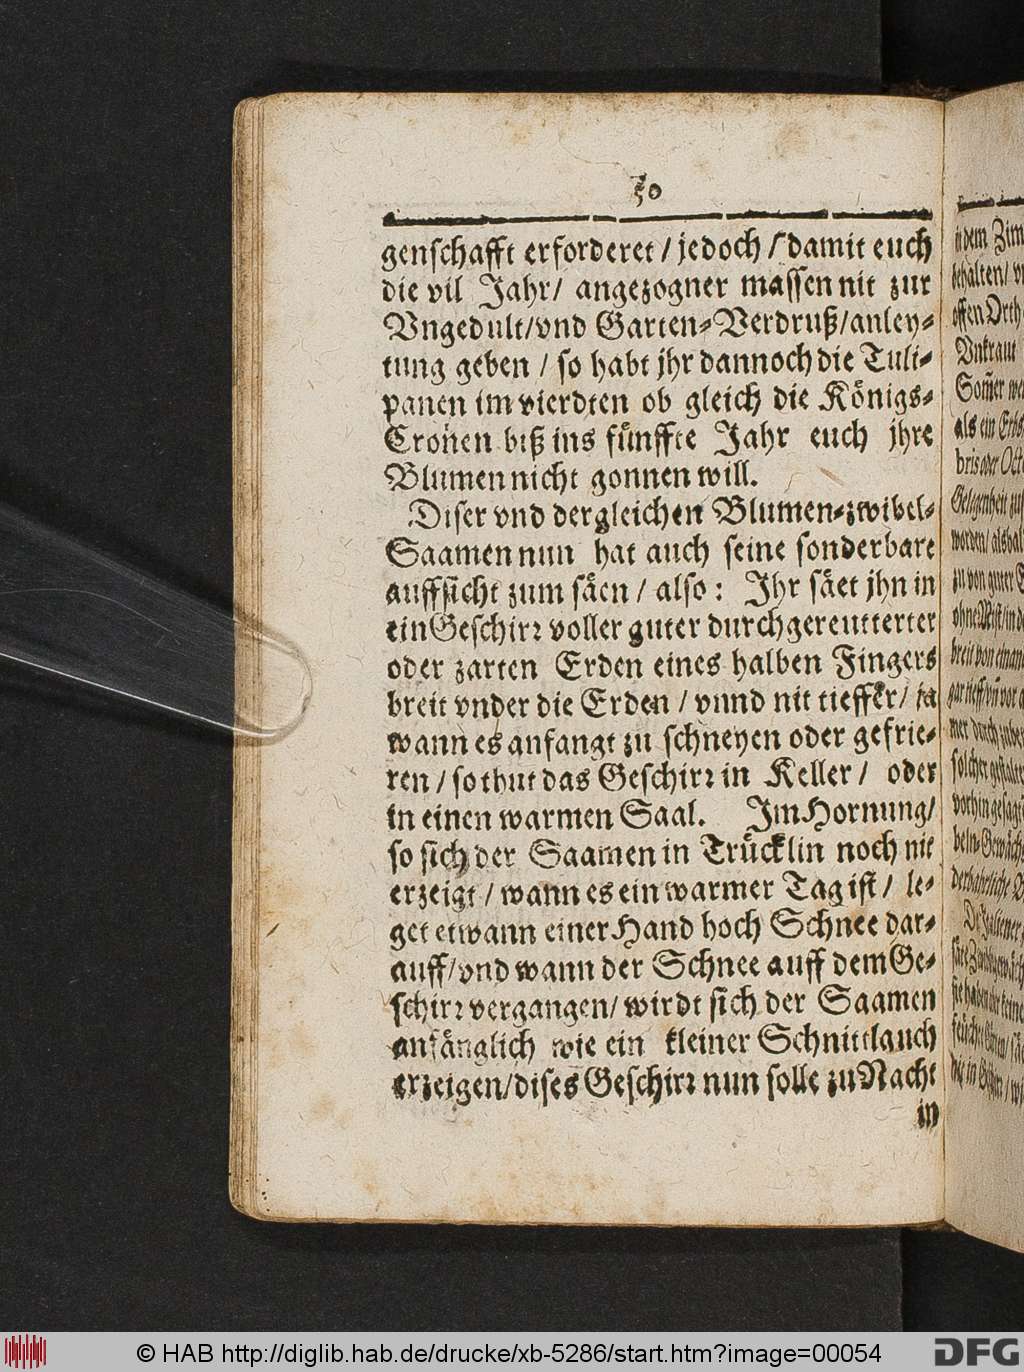 50
genschafft erforderet / jedoch / damit euch
die vil Jahr / angezogner massen nit zur
Vngedult / vnd Garten-Verdruß / anley-
tung geben / so habt jhr dannoch die Tuli-
panen im vierdten ob gleich die Königs-
Cronen biß ins fünffte Jahr euch jhre
Blumen nicht gonnen will.
Diser vnd dergleichen Blumen-zwibel-
Saamen nun hat auch seine sonderbare
auffsicht zum säen / also: Ihr säet jhn in
ein Geschirr voller guter durchgereutterter
oder zarten Erden eines halben Fingers
breit vnder die Erden / vnnd nit tieffer / ja
wann es anfangt zu schneyen oder gefrie-
ren / so thut das Geschirr in Keller / oder
in einen warmen Saal. Im Hornung /
so sich der Saamen in Trücklin noch nit
erzeigt / wann es ein warmer Tag ist / le-
get etwann einer Hand hoch Schnee dar-
auff / vnd wann der Schnee auff dem Ge-
schirr vergangen / wirdt sich der Saamen
anfänglich wie ein kleiner Schnittlauch
erzeigen / dises Geschirr nun solle zu Nacht
in
dem Zim
offen Orth
Vnkraut
als ein Erbs
Gelegenheit
worden / alshal
zu von guter
breit von einan
solcher gestalt
vorhin gesagt
De Italiener
© HAB http://diglib.hab.de/drucke/xb-5286/start.htm?image=00054
DFG